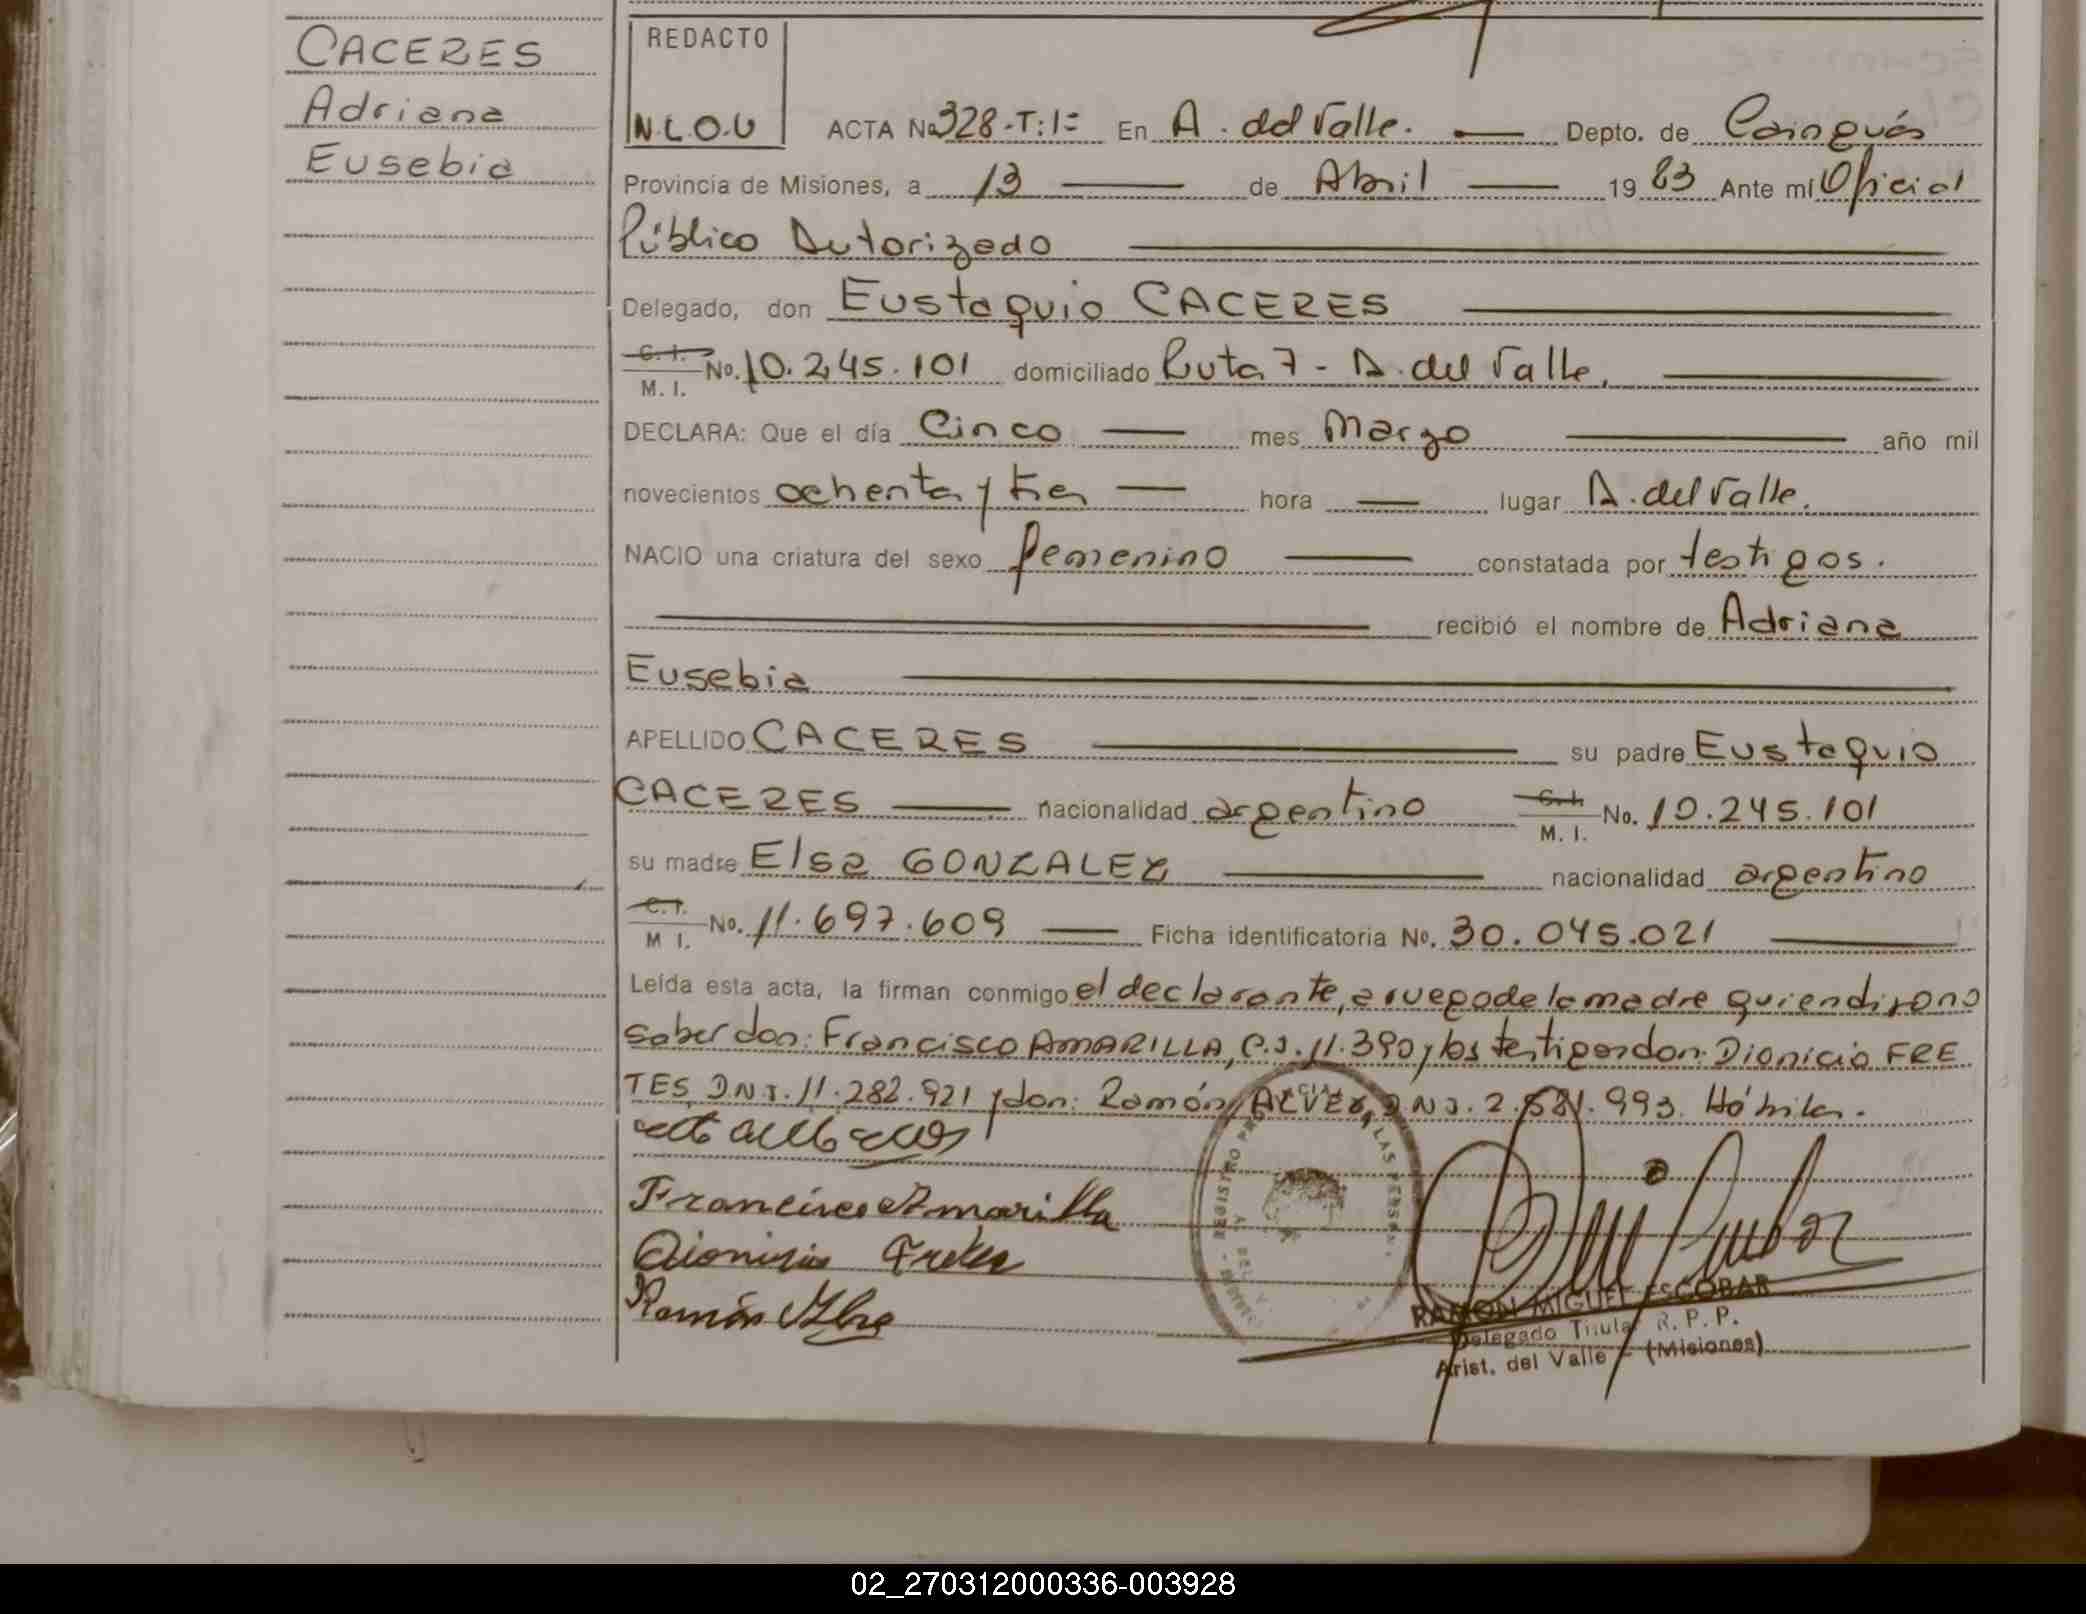 CACERES
Adriana
Eusebia
REDACTO
N.L.O.U
ACTA No 328-T:1= En A. del Valle. Depto. de Cainguás
Provincia de Misiones, a 13 de Abril 19 83 Ante mí Oficial
Público Autorizado
Delegado, don Eustaquio CACERES
C. I. M. I. No. 10.245.101 domiciliado Ruta 7 - A. del Valle,
DECLARA: Que el día Cinco mes Marzo año mil
novecientos ochenta y tres hora lugar A. del Valle.
NACIO una criatura del sexo femenino constatada por testigos.
recibió el nombre de Adriana
Eusebia
APELLIDO CACERES su padre Eustaquio
CACERES nacionalidad argentino C. I. M. I. No. 10.245.101
su madre Elsa GONZALEZ nacionalidad argentino
C. I. M I. No. 11.697.609 Ficha identificatoria No. 30.045.021
Leída esta acta, la firman conmigo el declarante, a ruego de la madre quien dijo no
saber don: Francisco AMARILLA, C.I. 11.390 y los testigos don: Dionicio FRE
TES, D.N.I. 11.282.921 y don: Ramón ALVEZ, D.N.I. 2.581.993. Hábiles.
Francisco Amarilla
Dionisio Fretes
Ramón
RAMON MIGUEL ESCOBAR
Delegado Titular R. P. P.
Arist. del Valle - (Misiones)
02_270312000336-003928